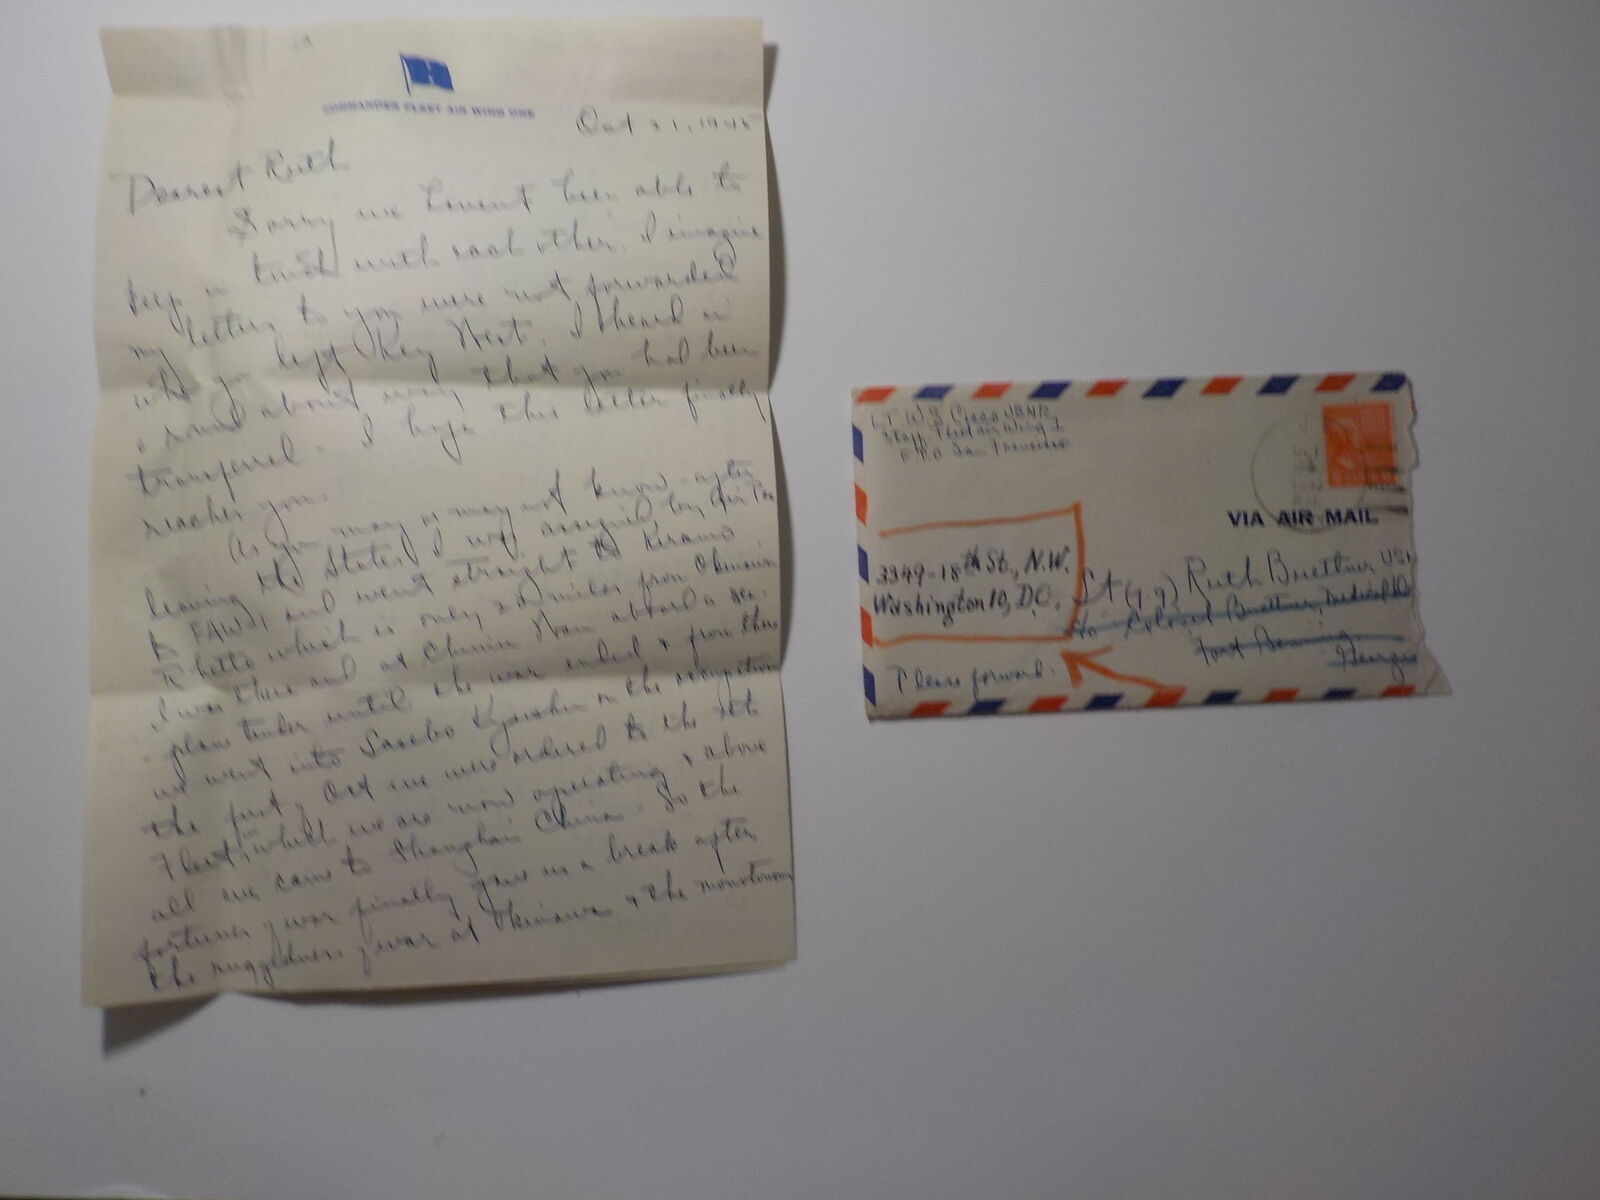 COMMANDER FLEET AIR WING ONE
Oct 21, 1945
Dearest Ruth
Sorry we havent been able to
keep in touch with each other. I imagine
my letters to you were not forwarded
when you left Key West. I heard in
a round about way that you had been
transferred. I hope this letter finally
reaches you.
As you may or may not know - after
leaving the States I was assigned by Air Pac
to FAW-1 and went straight to Kerama
Rhetto which is only 20 miles from Okinawa
I was there and at Chimu Wan aboard a sea-
plane tender until the war ended & from there
we went into Sasebo Kyushu on the occupation
the first of Oct we were ordered to the 7th
Fleet, which we are now operating & above
all we came to Shanghai China. So the
fortunes of war finally gave us a break after
the ruggedness of war at Okinawa & the monotonous
LT. W.S. USNR
Staff, Fleet air Wing 1
F.P.O San Francisco
VIA AIR MAIL
3349-18th St., N.W.
Washington 10, D.C.
Lt (j.g) Ruth Buettner USN
c/o Colonel Buettner, Medical
Fort Benning
Georgia
Please forward.